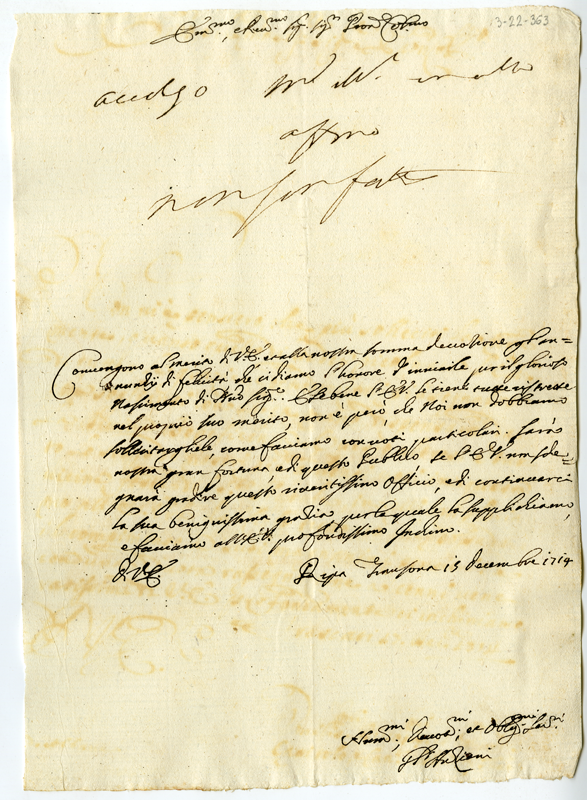 3-22-363
Em.mo, e Rev.mo Sig. Sig.r Pron Col.mo
accuso
affmo
non son fatti
Convengono al merito di V.E. e alla nostra somma devotione gl'an=
nuntij di felicità che ci diamo l'honore d'inviarle per il glorioso
Nascimento di N'ro Sig.re. E se bene l'E.V. le tiene tutte ristrette
nel proprio suo merito, non è però, che Noi non dobbiamo
sollecitarghele, come facciamo con voti particolari. Sarà
nostra gran fortuna, e di questo Publico se l'E.V. non sde=
gnarà gradire questo riverentissimo Officio, e di continuarci
la sua benignissima gratia, per la quale la supplichiamo,
e facciamo all'E.V. profondissimo Inchino.
Di V.E.
Ripa Transona 15 decembre 1714
Humi.mi, Devot.mi, et Oblig.mi
Gl'Antiani